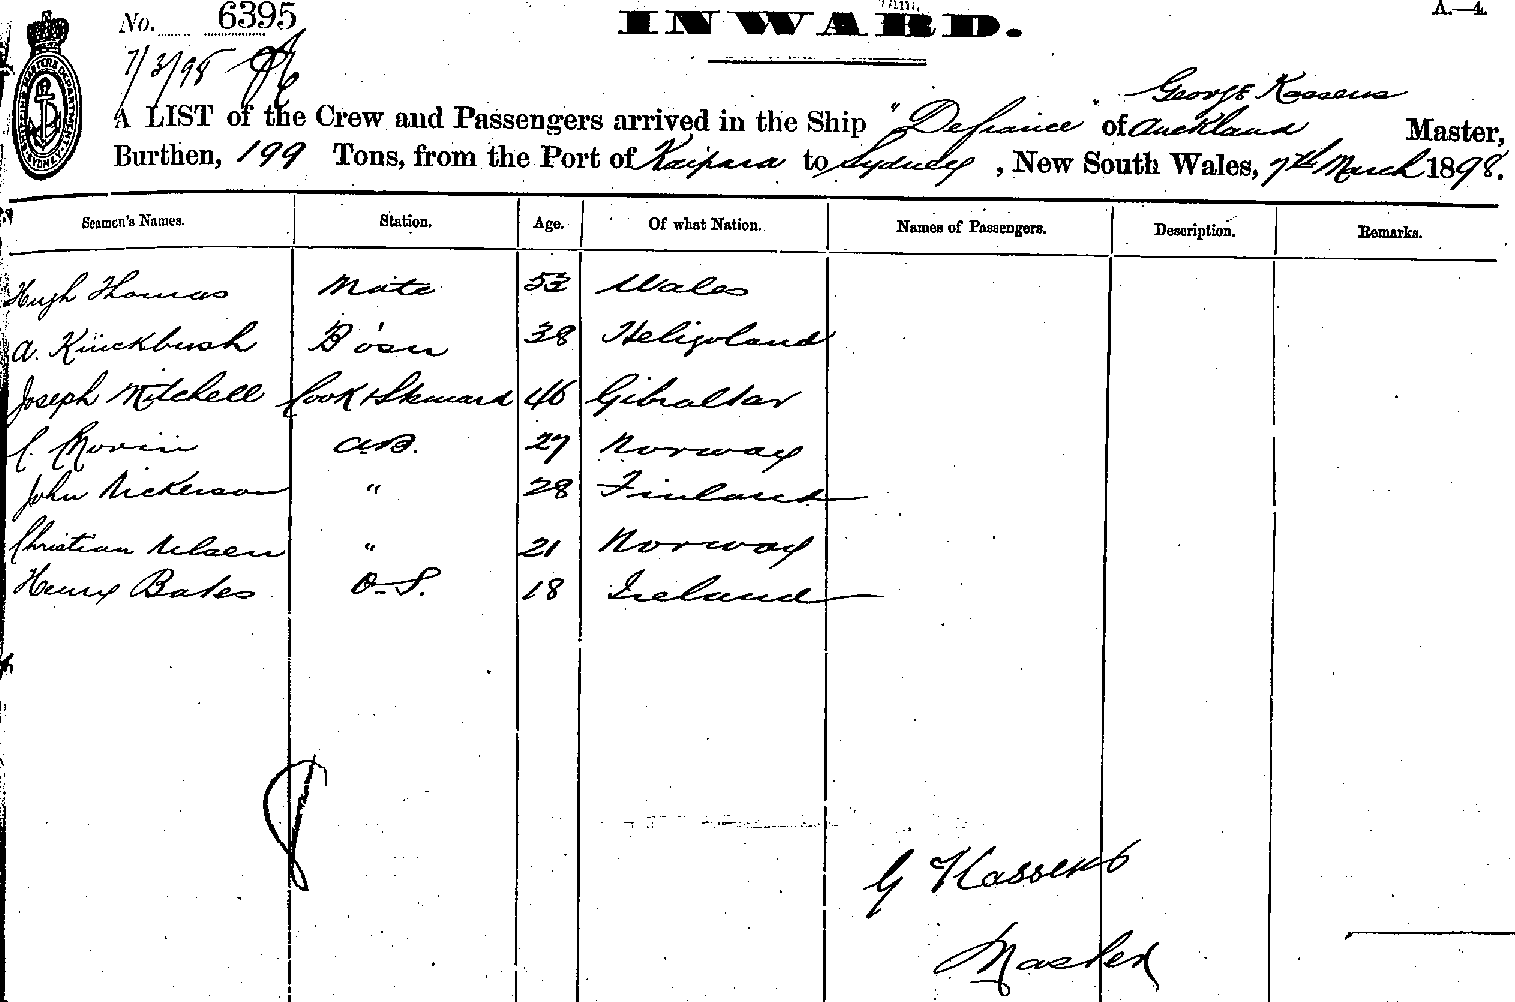 No. 6395
INWARD.
A.—4.
7/3/98
George Kassens
A LIST of the Crew and Passengers arrived in the Ship "Defiance" of Auckland Master,
Burthen, 199 Tons, from the Port of Kaipara to Sydney, New South Wales, 7th March 1898.
Seamen's Names. Station. Age. Of what Nation. Names of Passengers. Description. Remarks.
Hugh Thomas Mate 53 Wales
A. Kückbush Bosn 38 Heligoland
Joseph Mitchell Cook & Steward 46 Gibraltar
C. A.B. 27 Norway
John Nickerson " 28 Finland
Christian Nelsen " 21 Norway
Henry Bates O.S. 18 Ireland
G Kassens
Master